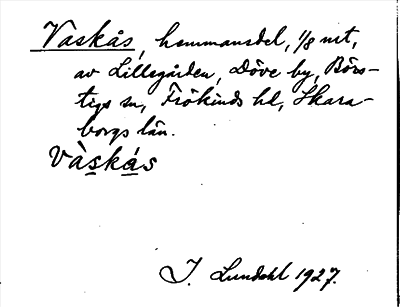 Vaskås, hemmansdel, 1/8 mt,
av Lillegården, Döve by, Börs-
tigs sn, Frökinds hd, Skara-
borgs län.
Vàskás
J. Lundahl 1927.